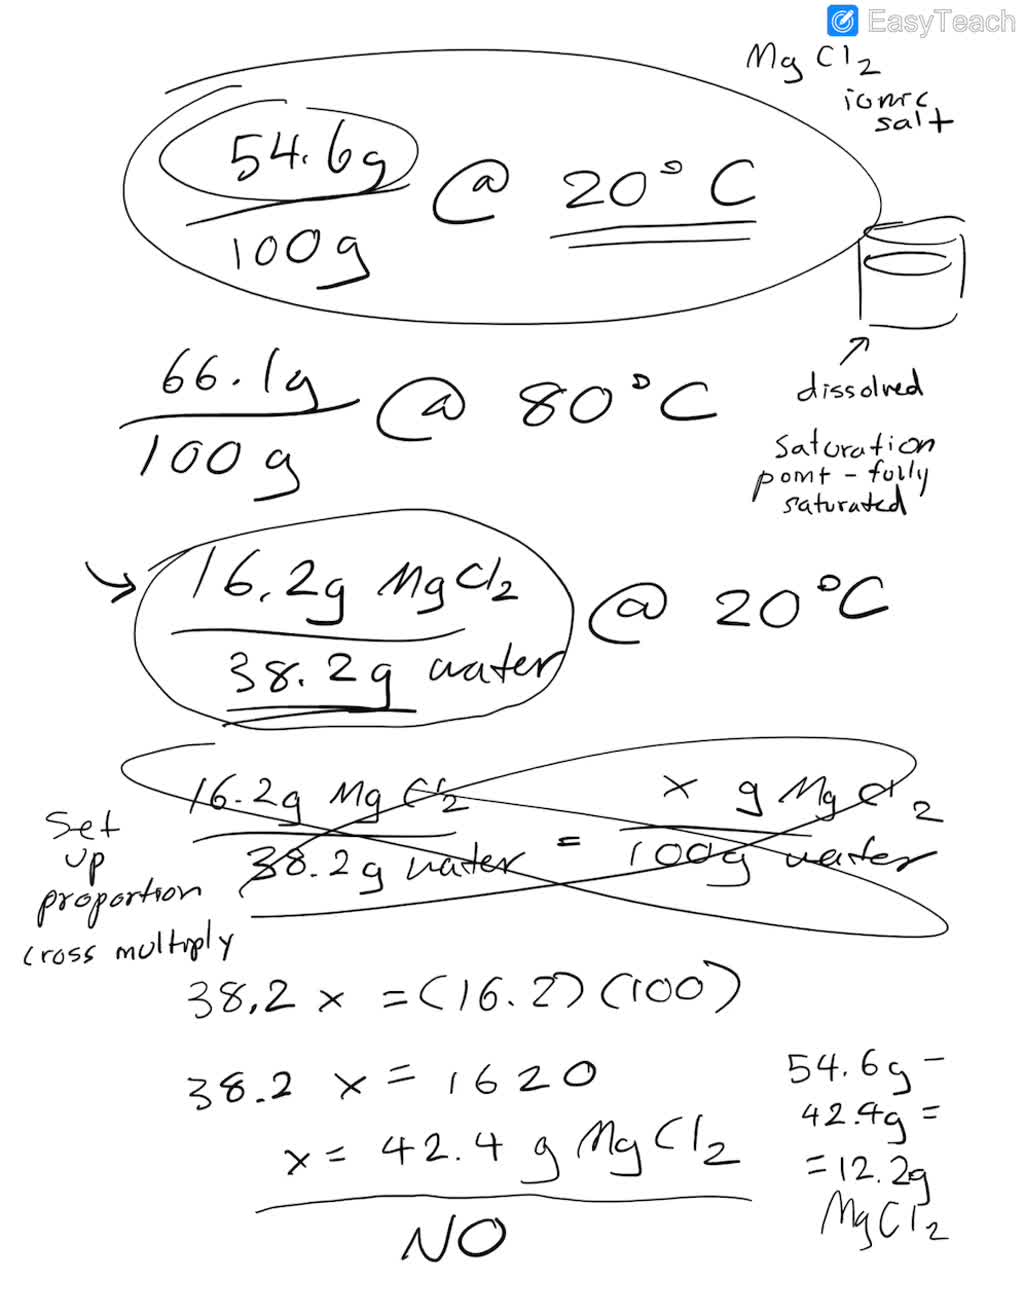 EasyTeach
MgCl2
ionic
salt
54.6g
100g
@ 20°C
66.1g
100g
@ 80°C
dissolved
saturation
point - fully
saturated
16.2g MgCl2
38.2g water
@ 20°C
Set
up
proportion
cross multiply
16.2g MgCl2
38.2g water
=
x g MgCl2
100g water
38.2 x = (16.2)(100)
38.2 x = 1620
x = 42.4 g MgCl2
NO
54.6g -
42.4g =
= 12.2g
MgCl2